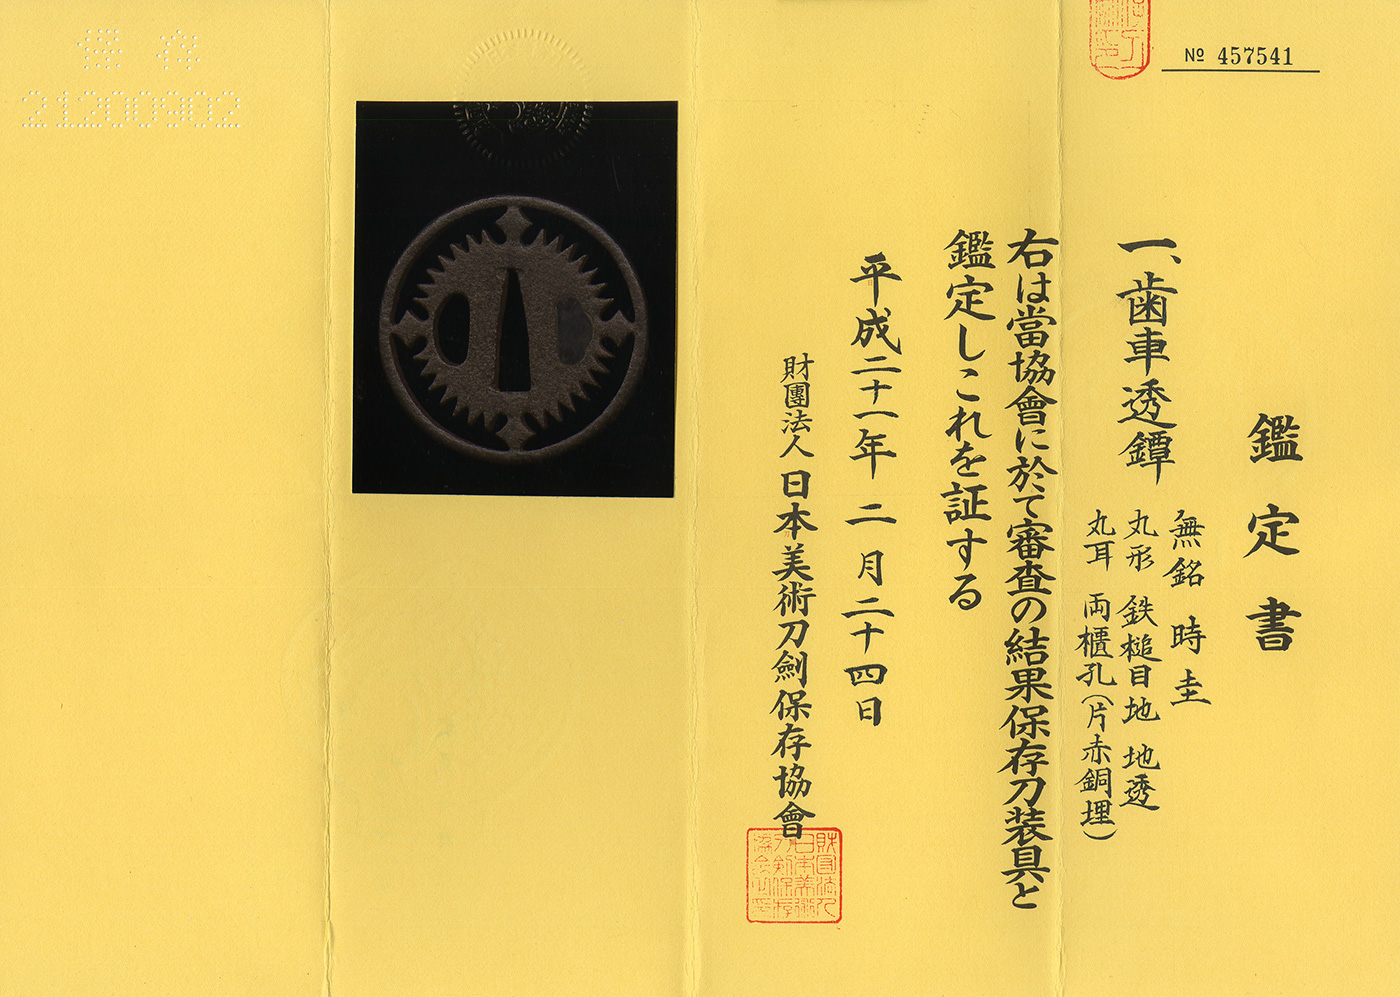 № 457541
鑑定書
一、歯車透鐔
無銘 時圭
丸形 鉄槌目地 地透
丸耳 両櫃孔(片赤銅埋)
右は當協會に於て審査の結果保存刀装具と
鑑定しこれを証する
平成二十一年 二月二十四日
財團法人 日本美術刀劍保存協會
財団法人
日本美術
刀剣保存
保存
21200902